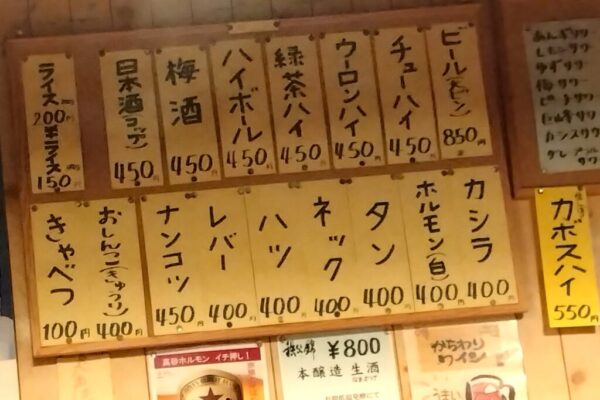 ビール(ビン)
850円
チューハイ
450円
ウーロンハイ
450円
緑茶ハイ
450円
ハイボール
450円
梅酒
450円
日本酒(コップ)
450円
ライス
200円
半ライス
150円
カシラ
400円
ホルモン(白)
400円
タン
400円
ネック
400円
ハツ
400円
レバー
400円
ナンコツ
450円
おしんこ(きゅうり)
400円
きゃべつ
100円
レモンサワー
ゆずサワー
梅サワー
カシスサワー
カボスハイ
550円
高砂ホルモン イチ押し!
秩父錦 ¥800
本醸造 生酒
かちわり
ワイン
うまい